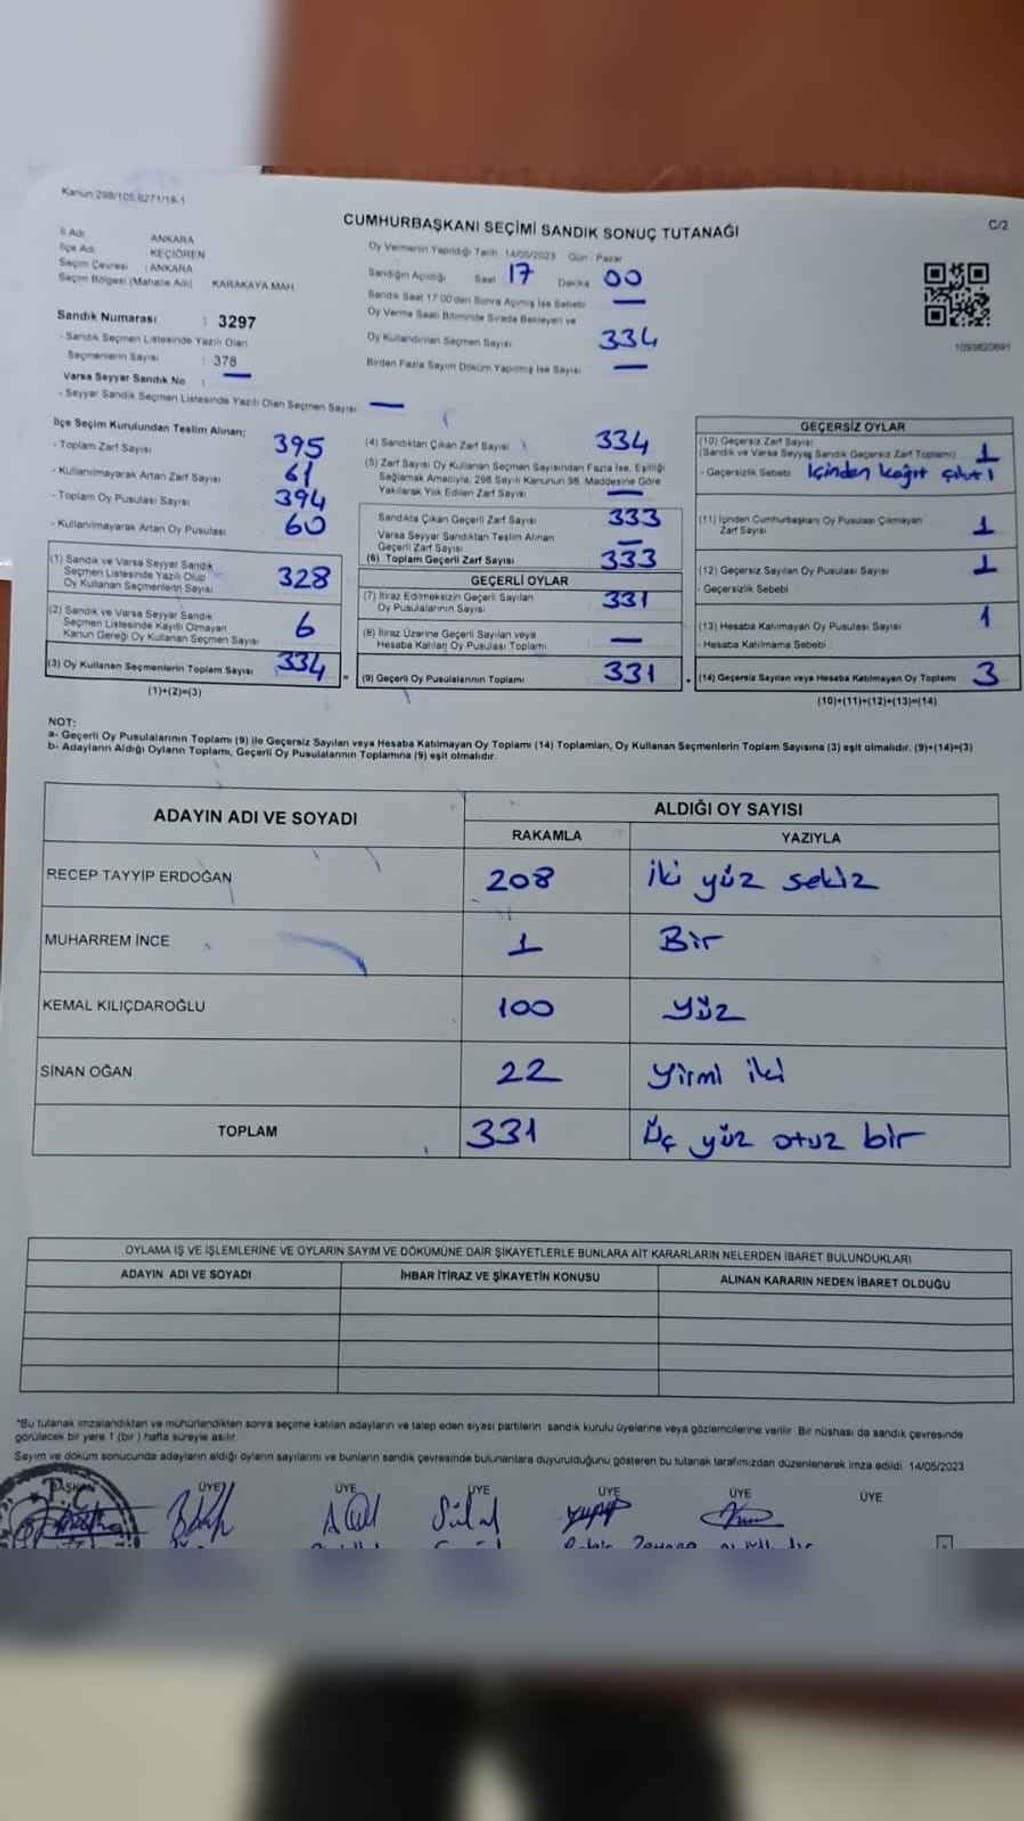 Kanun 298/105,6271/18-1
C/2
CUMHURBAŞKANI SEÇİMİ SANDIK SONUÇ TUTANAĞI
İl Adı : ANKARA
İlçe Adı : KEÇİÖREN
Seçim Çevresi : ANKARA
Seçim Bölgesi (Mahalle Adı) : KARAKAYA MAH.
Sandık Numarası : 3297
- Sandık Seçmen Listesinde Yazılı Olan
Seçmenlerin Sayısı : 378
Varsa Seyyar Sandık No : —
- Seyyar Sandık Seçmen Listesinde Yazılı Olan Seçmen Sayısı —
Oy Vermenin Yapıldığı Tarih 14/05/2023 Gün Pazar
Sandığın Açıldığı Saat 17 Dakika 00
Sandık Saat 17.00'den Sonra Açılmış İse Sebebi —
Oy Verme Saati Bitiminde Sırada Bekleyen ve
Oy Kullandırılan Seçmen Sayısı 334
Birden Fazla Sayım Döküm Yapılmış İse Sayısı —
1093820691
İlçe Seçim Kurulundan Teslim Alınan;
- Toplam Zarf Sayısı 395
- Kullanılmayarak Artan Zarf Sayısı 61
- Toplam Oy Pusulası Sayısı 394
- Kullanılmayarak Artan Oy Pusulası 60
(1) Sandık ve Varsa Seyyar Sandık
Seçmen Listesinde Yazılı Olup
Oy Kullanan Seçmenlerin Sayısı 328
(2) Sandık ve Varsa Seyyar Sandık
Seçmen Listesinde Kayıtlı Olmayan
Kanun Gereği Oy Kullanan Seçmen Sayısı 6
(3) Oy Kullanan Seçmenlerin Toplam Sayısı 334
(1)+(2)=(3)
(4) Sandıktan Çıkan Zarf Sayısı 334
(5) Zarf Sayısı Oy Kullanan Seçmen Sayısından Fazla İse, Eşitliği
Sağlamak Amacıyla, 298 Sayılı Kanunun 98. Maddesine Göre
Yakılarak Yok Edilen Zarf Sayısı —
Sandıkta Çıkan Geçerli Zarf Sayısı 333
Varsa Seyyar Sandıktan Teslim Alınan
Geçerli Zarf Sayısı —
(6) Toplam Geçerli Zarf Sayısı 333
GEÇERLİ OYLAR
(7) İtiraz Edilmeksizin Geçerli Sayılan
Oy Pusulalarının Sayısı 331
(8) İtiraz Üzerine Geçerli Sayılan veya
Hesaba Katılan Oy Pusulası Toplamı —
(9) Geçerli Oy Pusulalarının Toplamı 331
GEÇERSİZ OYLAR
(10) Geçersiz Zarf Sayısı
(Sandık ve Varsa Seyyar Sandık Geçersiz Zarf Toplamı) 1
- Geçersizlik Sebebi İçinden kağıt çıktı
(11) İçinden Cumhurbaşkanı Oy Pusulası Çıkmayan
Zarf Sayısı 1
(12) Geçersiz Sayılan Oy Pusulası Sayısı 1
- Geçersizlik Sebebi
(13) Hesaba Katılmayan Oy Pusulası Sayısı 1
- Hesaba Katılmama Sebebi
(14) Geçersiz Sayılan veya Hesaba Katılmayan Oy Toplamı 3
(10)+(11)+(12)+(13)=(14)
NOT:
a- Geçerli Oy Pusulalarının Toplamı (9) ile Geçersiz Sayılan veya Hesaba Katılmayan Oy Toplamı (14) Toplamları, Oy Kullanan Seçmenlerin Toplam Sayısına (3) eşit olmalıdır. (9)+(14)=(3)
b- Adayların Aldığı Oyların Toplamı, Geçerli Oy Pusulalarının Toplamına (9) eşit olmalıdır.
ADAYIN ADI VE SOYADI
ALDIĞI OY SAYISI
RAKAMLA YAZIYLA
RECEP TAYYİP ERDOĞAN 208 iki yüz sekiz
MUHARREM İNCE 1 Bir
KEMAL KILIÇDAROĞLU 100 yüz
SİNAN OĞAN 22 yirmi iki
TOPLAM 331 Üç yüz otuz bir
OYLAMA İŞ VE İŞLEMLERİNE VE OYLARIN SAYIM VE DÖKÜMÜNE DAİR ŞİKAYETLERLE BUNLARA AİT KARARLARIN NELERDEN İBARET BULUNDUKLARI
ADAYIN ADI VE SOYADI İHBAR İTİRAZ VE ŞİKAYETİN KONUSU ALINAN KARARIN NEDEN İBARET OLDUĞU
*Bu tutanak imzalandıktan ve mühürlendikten sonra seçime katılan adayların ve talep eden siyasi partilerin sandık kurulu üyelerine veya gözlemcilerine verilir. Bir nüshası da sandık çevresinde
görülecek bir yere 1 (bir) hafta süreyle asılır.
Sayım ve döküm sonucunda adayların aldığı oyların sayılarını ve bunların sandık çevresinde bulunanlara duyurulduğunu gösteren bu tutanak tarafımızdan düzenlenerek imza edildi. 14/05/2023
BAŞKAN ÜYE ÜYE ÜYE ÜYE ÜYE ÜYE